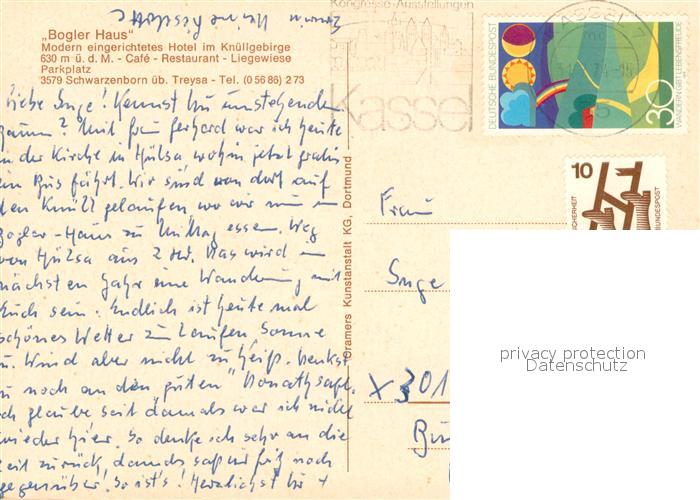 "Bogler Haus"
Modern eingerichtetes Hotel im Knüllgebirge
630 m ü. d. M. - Café - Restaurant - Liegewiese
Parkplatz
3579 Schwarzenborn üb. Treysa - Tel. (0 56 86) 2 73
Liebe Inge! Kennst Du umstehenden
Raum? Mit Frau Gerhard war ich heute
in der Kirche in Hülsa wohin jetzt gratis
ein Bus fährt. Wir sind von dort auf
den Knüll gelaufen wo wir nun im
Bogler-Haus zu Mittag essen. Weg
von Hülsa aus 2 Std. Das wird im
nächsten Jahr eine Wanderung mit
Euch sein. Endlich ist heute mal
schönes Wetter zum Laufen, Sonne
u. Wind aber nicht zu heiß. Denkst
Du noch an den "guten"
ich glaube seit damals war ich nicht
wieder hier. So denke ich sehr an die
Zeit zurück, damals saß mir noch
gegenüber! So ist's! Herzlichst
Cramers Kunstanstalt KG, Dortmund
Kongresse-Ausstellungen
Kassel
KASSEL 7
DEUTSCHE BUNDESPOST
30
WANDERN GIBT LEBENSFREUDE
10
BUNDESPOST
Frau
Inge
X 301
privacy protection
Datenschutz